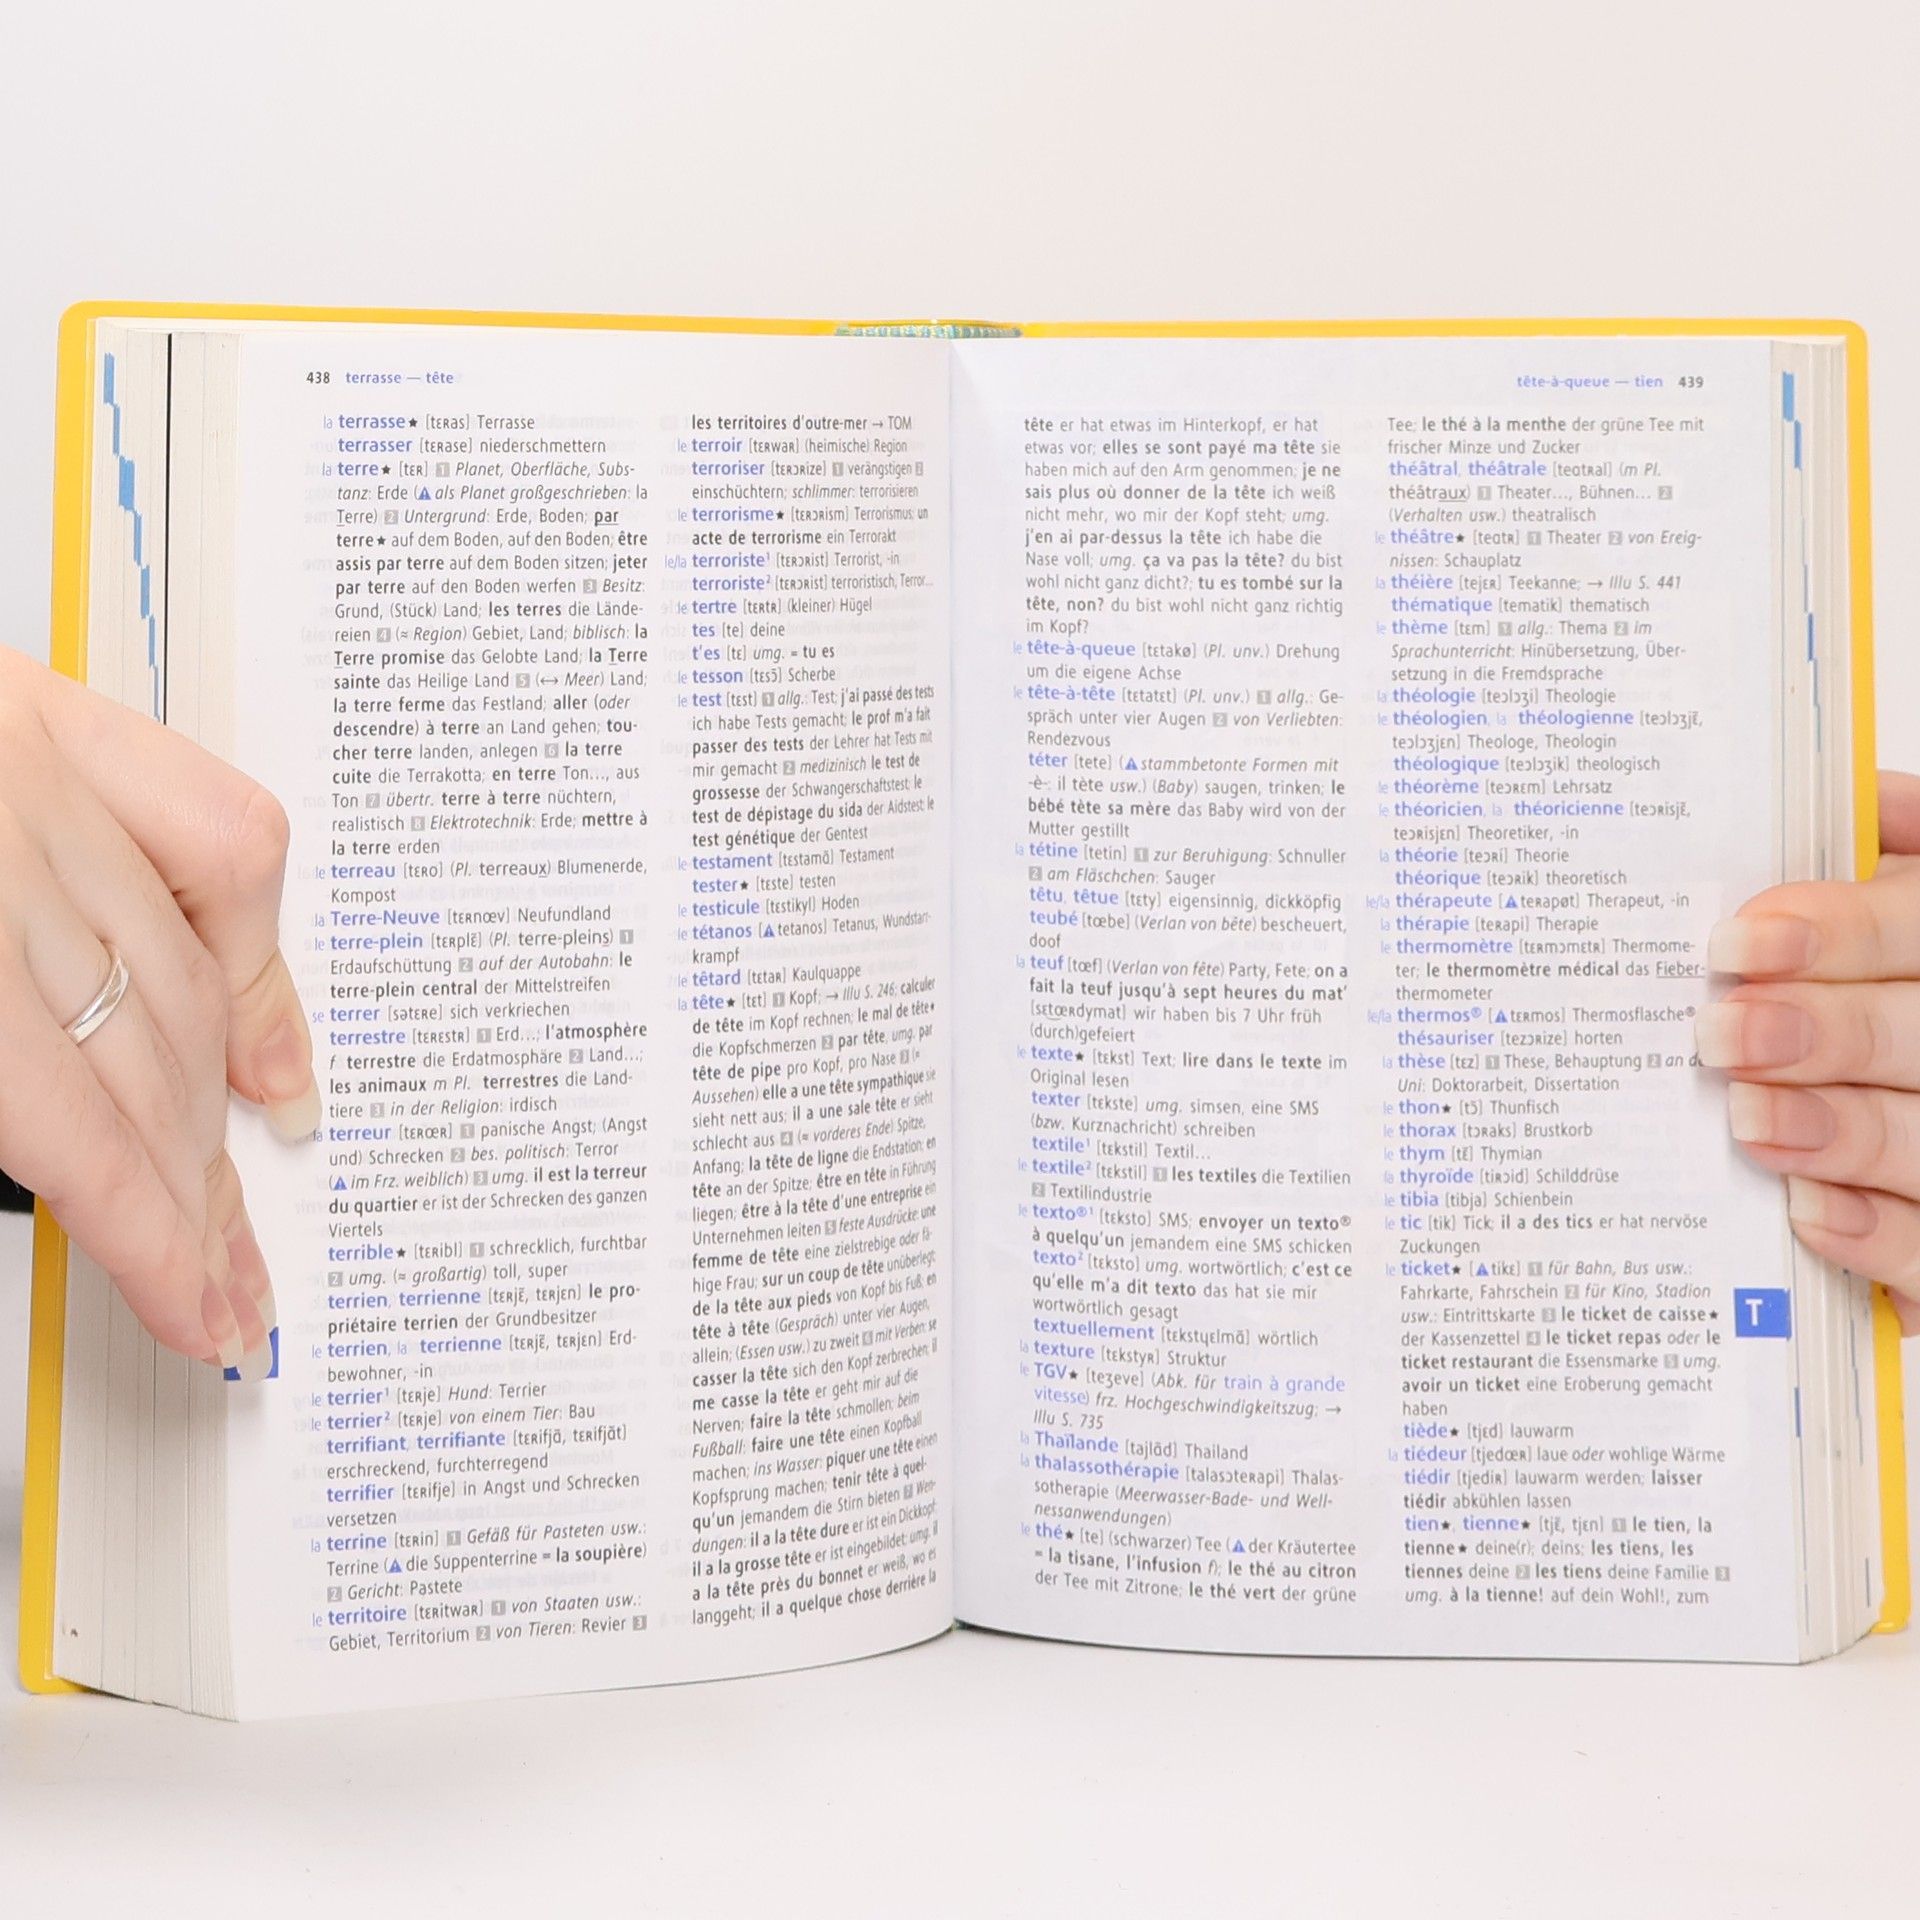 438 terrasse — tête
la terrasse★ [tɛʀas] Terrasse
terrasser [tɛʀase] niederschmettern
la terre★ [tɛʀ] 1 Planet, Oberfläche, Subs-
tanz: Erde (⚠ als Planet großgeschrieben: la
Terre) 2 Untergrund: Erde, Boden; par
terre★ auf dem Boden, auf den Boden; être
assis par terre auf dem Boden sitzen; jeter
par terre auf den Boden werfen 3 Besitz:
Grund, (Stück) Land; les terres die Lände-
reien 4 (≈ Region) Gebiet, Land; biblisch: la
Terre promise das Gelobte Land; la Terre
sainte das Heilige Land 5 (↔ Meer) Land;
la terre ferme das Festland; aller (oder
descendre) à terre an Land gehen; tou-
cher terre landen, anlegen 6 la terre
cuite die Terrakotta; en terre Ton…, aus
Ton 7 übertr. terre à terre nüchtern,
realistisch 8 Elektrotechnik: Erde; mettre à
la terre erden
le terreau [tɛʀo] (Pl. terreaux) Blumenerde,
Kompost
la Terre-Neuve [tɛʀnœv] Neufundland
le terre-plein [tɛʀplɛ̃] (Pl. terre-pleins) 1
Erdaufschüttung 2 auf der Autobahn: le
terre-plein central der Mittelstreifen
se terrer [sətɛʀe] sich verkriechen
terrestre [tɛʀɛstʀ] 1 Erd…; l'atmosphère
f terrestre die Erdatmosphäre 2 Land…;
les animaux m Pl. terrestres die Land-
tiere 3 in der Religion: irdisch
la terreur [tɛʀœʀ] 1 panische Angst; (Angst
und) Schrecken 2 bes. politisch: Terror
(⚠ im Frz. weiblich) 3 umg. il est la terreur
du quartier er ist der Schrecken des ganzen
Viertels
terrible★ [tɛʀibl] 1 schrecklich, furchtbar
2 umg. (≈ großartig) toll, super
terrien, terrienne [tɛʀjɛ̃, tɛʀjɛn] le pro-
priétaire terrien der Grundbesitzer
le terrien, la terrienne [tɛʀjɛ̃, tɛʀjɛn] Erd-
bewohner, -in
le terrier¹ [tɛʀje] Hund: Terrier
le terrier² [tɛʀje] von einem Tier: Bau
terrifiant, terrifiante [tɛʀifjɑ̃, tɛʀifjɑ̃t]
erschreckend, furchterregend
terrifier [tɛʀifje] in Angst und Schrecken
versetzen
la terrine [tɛʀin] 1 Gefäß für Pasteten usw.:
Terrine (⚠ die Suppenterrine = la soupière)
2 Gericht: Pastete
le territoire [tɛʀitwaʀ] 1 von Staaten usw.:
Gebiet, Territorium 2 von Tieren: Revier 3
les territoires d'outre-mer → TOM
le terroir [tɛʀwaʀ] (heimische) Region
terroriser [tɛʀɔʀize] 1 verängstigen 2
einschüchtern; schlimmer: terrorisieren
le terrorisme★ [tɛʀɔʀism] Terrorismus; un
acte de terrorisme ein Terrorakt
le/la terroriste¹ [tɛʀɔʀist] Terrorist, -in
terroriste² [tɛʀɔʀist] terroristisch, Terror…
le tertre [tɛʀtʀ] (kleiner) Hügel
tes [te] deine
t'es [tɛ] umg. = tu es
le tesson [tɛsɔ̃] Scherbe
le test [tɛst] 1 allg.: Test; j'ai passé des tests
ich habe Tests gemacht; le prof m'a fait
passer des tests der Lehrer hat Tests mit
mir gemacht 2 medizinisch le test de
grossesse der Schwangerschaftstest; le
test de dépistage du sida der Aidstest; le
test génétique der Gentest
le testament [tɛstamɑ̃] Testament
tester★ [tɛste] testen
le testicule [tɛstikyl] Hoden
le tétanos [⚠ tetanos] Tetanus, Wundstarr-
krampf
le têtard [tɛtaʀ] Kaulquappe
la tête★ [tɛt] 1 Kopf; → Illu S. 246; calculer
de tête im Kopf rechnen; le mal de tête★
die Kopfschmerzen 2 par tête, umg. par
tête de pipe pro Kopf, pro Nase 3 (≈
Aussehen) elle a une tête sympathique sie
sieht nett aus; il a une sale tête er sieht
schlecht aus 4 (≈ vorderes Ende) Spitze,
Anfang; la tête de ligne die Endstation; en
tête an der Spitze; être en tête in Führung
liegen; être à la tête d'une entreprise ein
Unternehmen leiten 5 feste Ausdrücke: une
femme de tête eine zielstrebige oder fä-
hige Frau; sur un coup de tête unüberlegt;
de la tête aux pieds von Kopf bis Fuß; en
tête à tête (Gespräch) unter vier Augen,
allein; (Essen usw.) zu zweit 6 mit Verben: se
casser la tête sich den Kopf zerbrechen; il
me casse la tête er geht mir auf die
Nerven; faire la tête schmollen; beim
Fußball: faire une tête einen Kopfball
machen; ins Wasser: piquer une tête einen
Kopfsprung machen; tenir tête à quel-
qu'un jemandem die Stirn bieten 7 Wen-
dungen: il a la tête dure er ist ein Dickkopf;
il a la grosse tête er ist eingebildet; umg. il
a la tête près du bonnet er weiß, wo es
langgeht; il a quelque chose derrière la
tête-à-queue — tien 439
tête er hat etwas im Hinterkopf, er hat
etwas vor; elles se sont payé ma tête sie
haben mich auf den Arm genommen; je ne
sais plus où donner de la tête ich weiß
nicht mehr, wo mir der Kopf steht; umg.
j'en ai par-dessus la tête ich habe die
Nase voll; umg. ça va pas la tête? du bist
wohl nicht ganz dicht?; tu es tombé sur la
tête, non? du bist wohl nicht ganz richtig
im Kopf?
le tête-à-queue [tɛtakø] (Pl. unv.) Drehung
um die eigene Achse
le tête-à-tête [tɛtatɛt] (Pl. unv.) 1 allg.: Ge-
spräch unter vier Augen 2 von Verliebten:
Rendezvous
téter [tete] (⚠ stammbetonte Formen mit
-è-: il tète usw.) (Baby) saugen, trinken; le
bébé tète sa mère das Baby wird von der
Mutter gestillt
la tétine [tetin] 1 zur Beruhigung: Schnuller
2 am Fläschchen: Sauger
têtu, têtue [tɛty] eigensinnig, dickköpfig
teubé [tœbe] (Verlan von bête) bescheuert,
doof
la teuf [tœf] (Verlan von fête) Party, Fete; on a
fait la teuf jusqu'à sept heures du mat'
[sɛtœʀdymat] wir haben bis 7 Uhr früh
(durch)gefeiert
le texte★ [tɛkst] Text; lire dans le texte im
Original lesen
texter [tɛkste] umg. simsen, eine SMS
(bzw. Kurznachricht) schreiben
textile¹ [tɛkstil] Textil…
le textile² [tɛkstil] 1 les textiles die Textilien
2 Textilindustrie
le texto®¹ [tɛksto] SMS; envoyer un texto®
à quelqu'un jemandem eine SMS schicken
texto² [tɛksto] umg. wortwörtlich; c'est ce
qu'elle m'a dit texto das hat sie mir
wortwörtlich gesagt
textuellement [tɛkstɥɛlmɑ̃] wörtlich
la texture [tɛkstyʀ] Struktur
le TGV★ [teʒeve] (Abk. für train à grande
vitesse) frz. Hochgeschwindigkeitszug; →
Illu S. 735
la Thaïlande [tajlɑ̃d] Thailand
la thalassothérapie [talasɔteʀapi] Thalas-
sotherapie (Meerwasser-Bade- und Well-
nessanwendungen)
le thé★ [te] (schwarzer) Tee (⚠ der Kräutertee
= la tisane, l'infusion f); le thé au citron
der Tee mit Zitrone; le thé vert der grüne
Tee; le thé à la menthe der grüne Tee mit
frischer Minze und Zucker
théâtral, théâtrale [teɑtʀal] (m Pl.
théâtraux) 1 Theater…, Bühnen… 2
(Verhalten usw.) theatralisch
le théâtre★ [teɑtʀ] 1 Theater 2 von Ereig-
nissen: Schauplatz
la théière [tejɛʀ] Teekanne; → Illu S. 441
thématique [tematik] thematisch
le thème [tɛm] 1 allg.: Thema 2 im
Sprachunterricht: Hinübersetzung, Über-
setzung in die Fremdsprache
la théologie [teɔlɔʒi] Theologie
le théologien, la théologienne [teɔlɔʒjɛ̃,
teɔlɔʒjɛn] Theologe, Theologin
théologique [teɔlɔʒik] theologisch
le théorème [teɔʀɛm] Lehrsatz
le théoricien, la théoricienne [teɔʀisjɛ̃,
teɔʀisjɛn] Theoretiker, -in
la théorie [teɔʀi] Theorie
théorique [teɔʀik] theoretisch
le/la thérapeute [⚠ teʀapøt] Therapeut, -in
la thérapie [teʀapi] Therapie
le thermomètre [tɛʀmɔmɛtʀ] Thermome-
ter; le thermomètre médical das Fieber-
thermometer
le/la thermos® [⚠ tɛʀmos] Thermosflasche®
thésauriser [tezɔʀize] horten
la thèse [tɛz] 1 These, Behauptung 2 an
Uni: Doktorarbeit, Dissertation
le thon★ [tɔ̃] Thunfisch
le thorax [tɔʀaks] Brustkorb
le thym [tɛ̃] Thymian
la thyroïde [tiʀɔid] Schilddrüse
le tibia [tibja] Schienbein
le tic [tik] Tick; il a des tics er hat nervöse
Zuckungen
le ticket★ [⚠ tikɛ] 1 für Bahn, Bus usw.:
Fahrkarte, Fahrschein 2 für Kino, Stadion
usw.: Eintrittskarte 3 le ticket de caisse★
der Kassenzettel 4 le ticket repas oder le
ticket restaurant die Essensmarke 5 umg.
avoir un ticket eine Eroberung gemacht
haben
tiède★ [tjɛd] lauwarm
la tiédeur [tjedœʀ] laue oder wohlige Wärme
tiédir [tjediʀ] lauwarm werden; laisser
tiédir abkühlen lassen
tien★, tienne★ [tjɛ̃, tjɛn] 1 le tien, la
tienne★ deine(r); deins; les tiens, les
tiennes deine 2 les tiens deine Familie 3
umg. à la tienne! auf dein Wohl!, zum
T